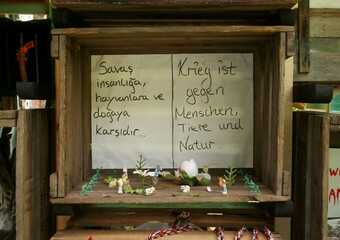 Savaş
insanlığa,
hayvanlara ve
doğaya
karşıdır...
Krieg ist
gegen
Menschen,
Tiere und
Natur